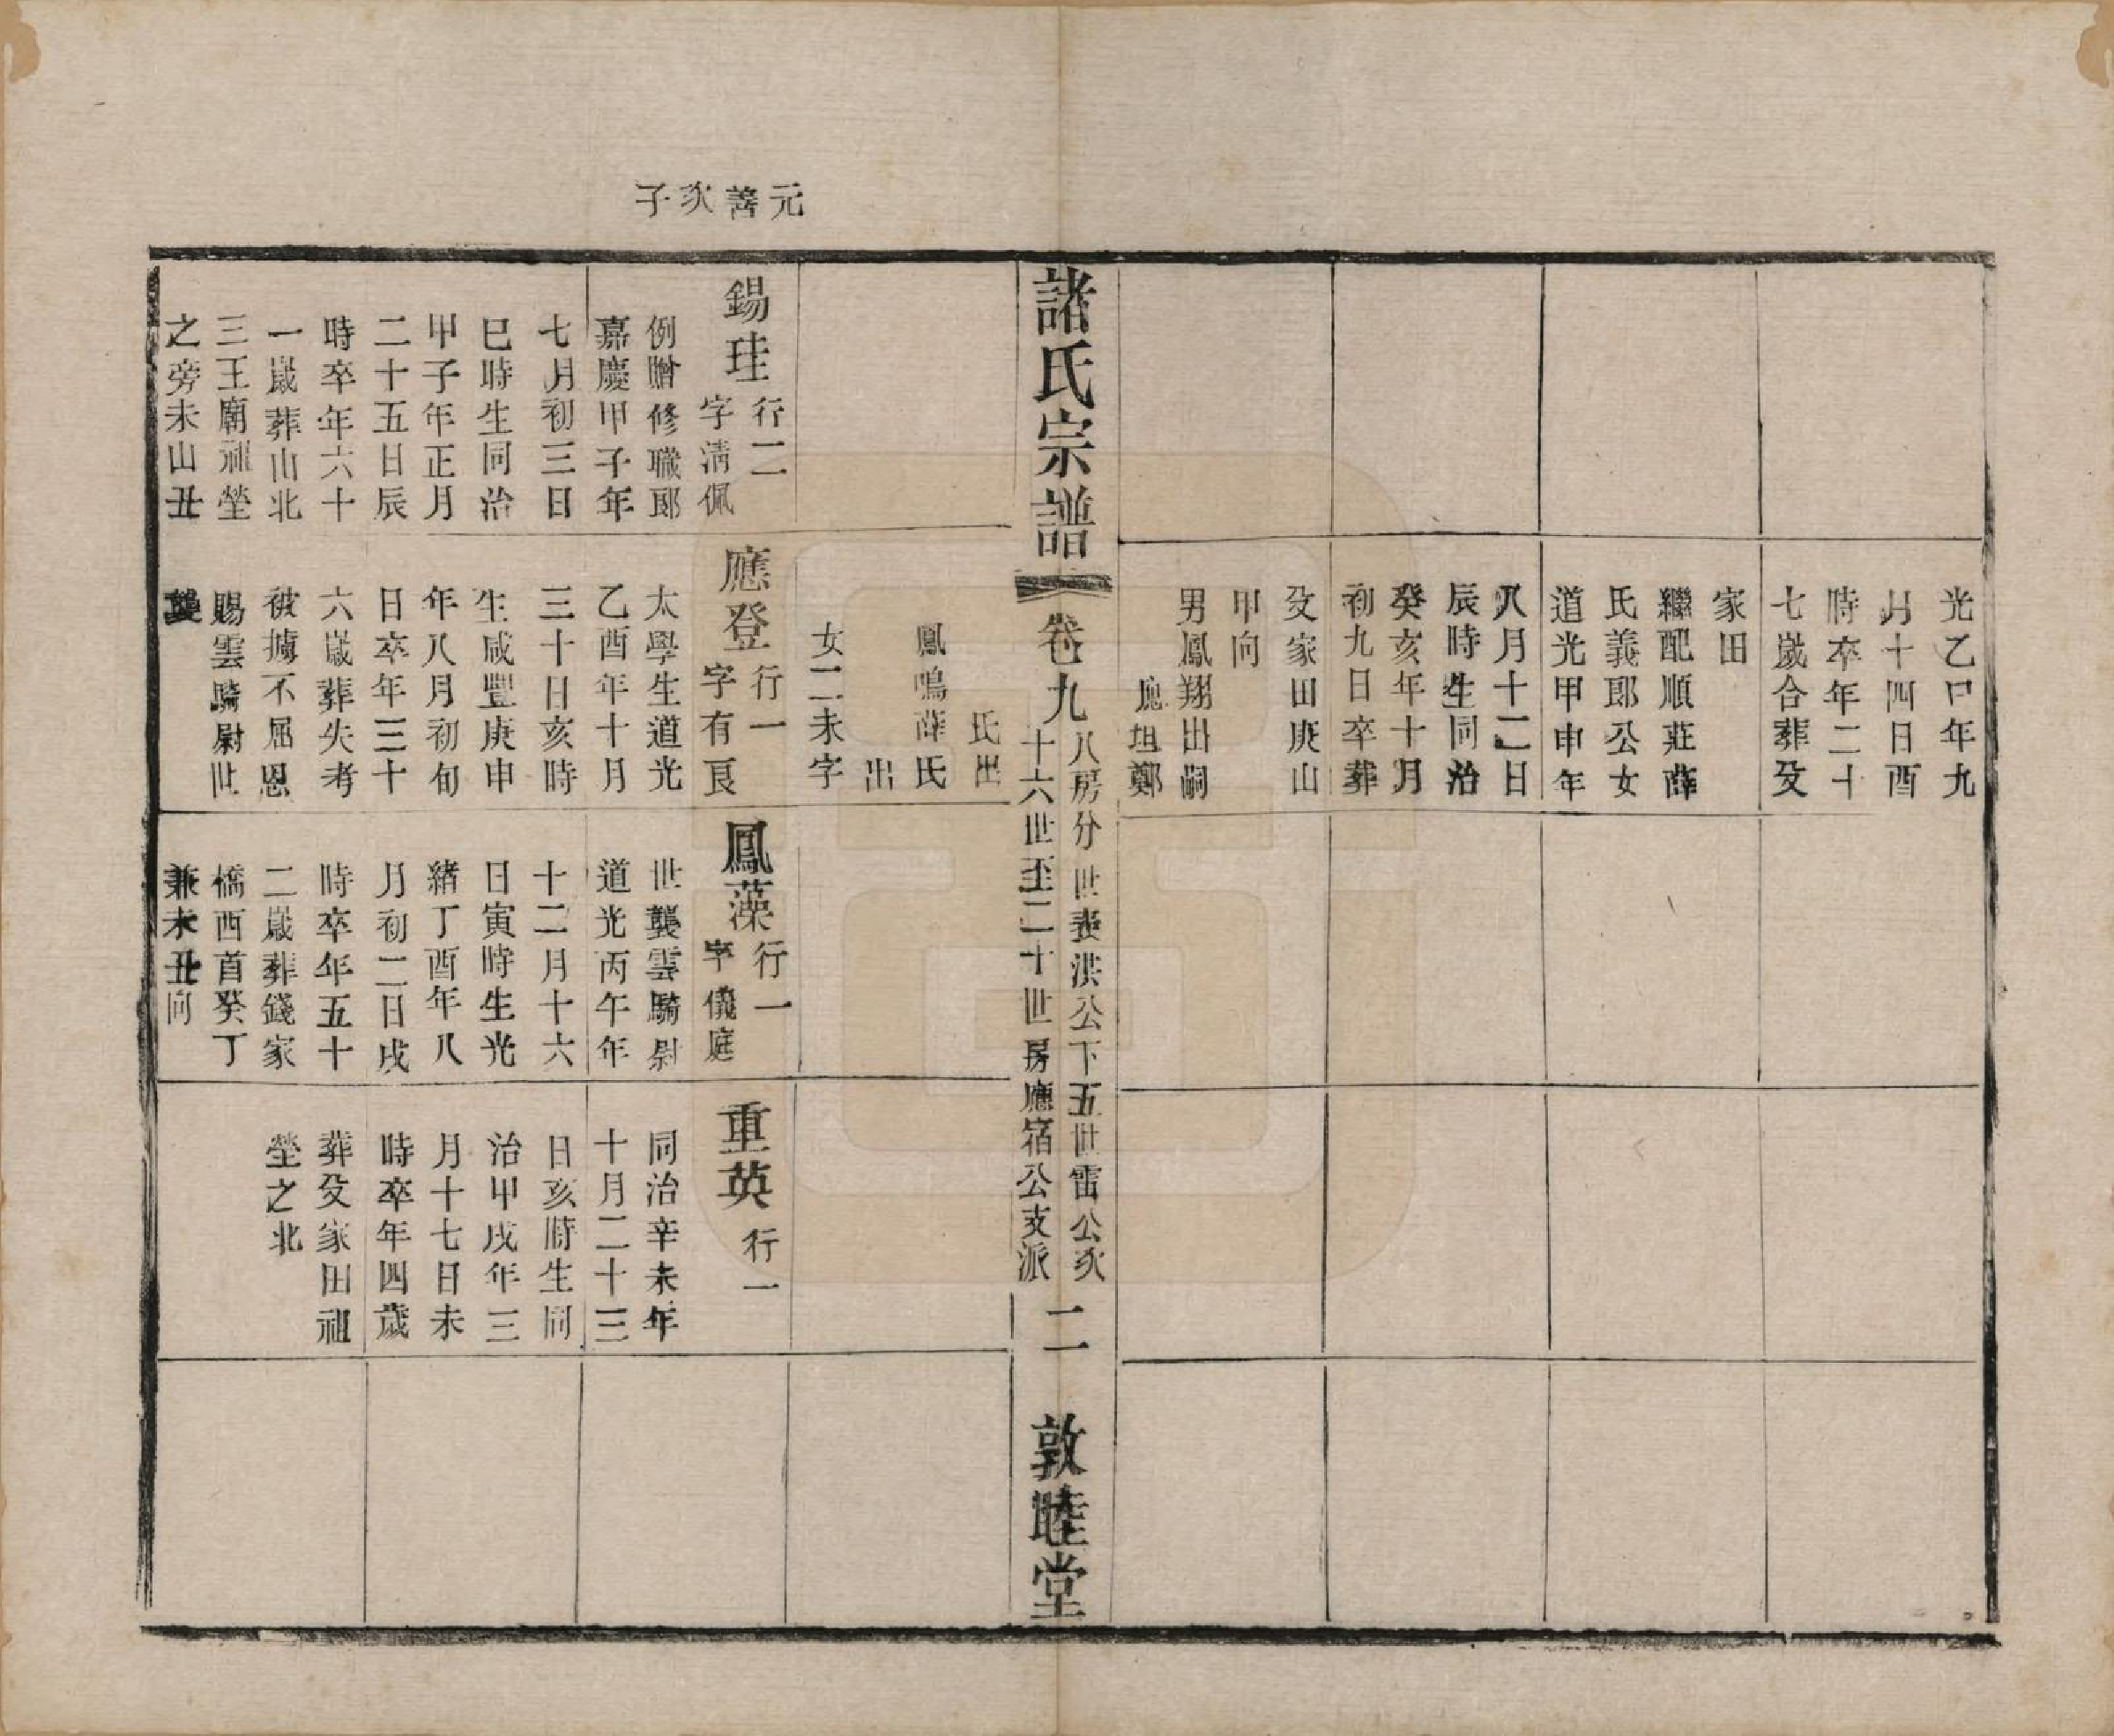 光乙口年九
月十四日酉
時卒年二十
七歲合葬殳
家田
繼配順莊薛
氏義郎公女
道光甲申年
八月十二日
辰時生同治
癸亥年十月
初九日卒葬
殳家田庚山
甲向
男鳳翔出嗣
應坦鄭
諸氏宗譜
卷九
八房分世表洪公下五世雷公次
十六世至二十世房應宿公支派
二
敦睦堂
氏出
鳳鳴薛氏
出
女二未字
元善次子
錫珪
行二
字清佩
例贈修職郎
嘉慶甲子年
七月初三日
巳時生同治
甲子年正月
二十五日辰
時卒年六十
一歲葬山北
三王廟祖塋
之旁未山丑
應登
行一
字有良
太學生道光
乙酉年十月
三十日亥時
生咸豐庚申
年八月初旬
日卒年三十
六歲葬失考
被擄不屈恩
賜雲騎尉世
襲
鳳藻
行一
字儀庭
世襲雲騎尉
道光丙午年
十二月十六
日寅時生光
緒丁酉年八
月初二日戌
時卒年五十
二歲葬錢家
橋西首癸丁
兼未丑向
重英
行一
同治辛未年
十月二十三
日亥時生同
治甲戌年三
月十七日未
時卒年四歲
葬殳家田祖
塋之北